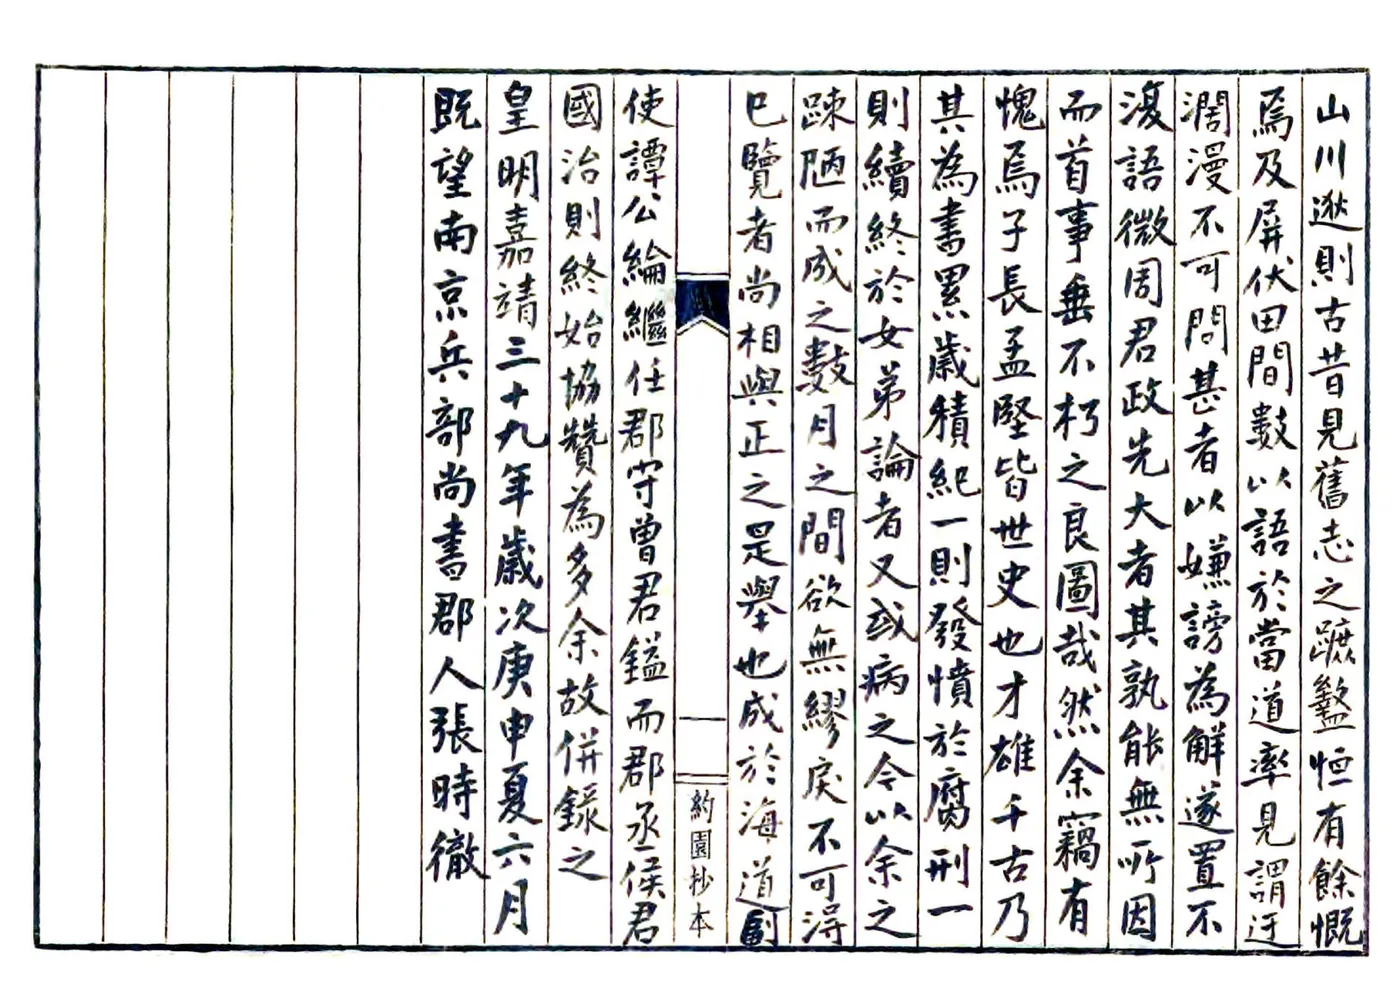 山川逖則古昔見舊志之蹠盭恒有餘慨
焉及屏伏田間數以語於當道率見謂迂
濶漫不可問甚者以嫌謗為解遂置不
復語微周君政先大者其孰能無所因
而首事垂不朽之良圖哉然余竊有
愧焉子長孟堅皆世史也才雄千古乃
其為書累歲積紀一則發憤於腐刑一
則續終於女弟論者又或病之今以余之
踈陋而成之數月之間欲無繆戾不可得
已覽者尚相與正之是舉也成於海道副
約園抄本
使譚公綸繼任郡守曾君鎰而郡丞侯君
國治則終始協贊為多余故併錄之
皇明嘉靖三十九年歲次庚申夏六月
既望南京兵部尚書郡人張時徹